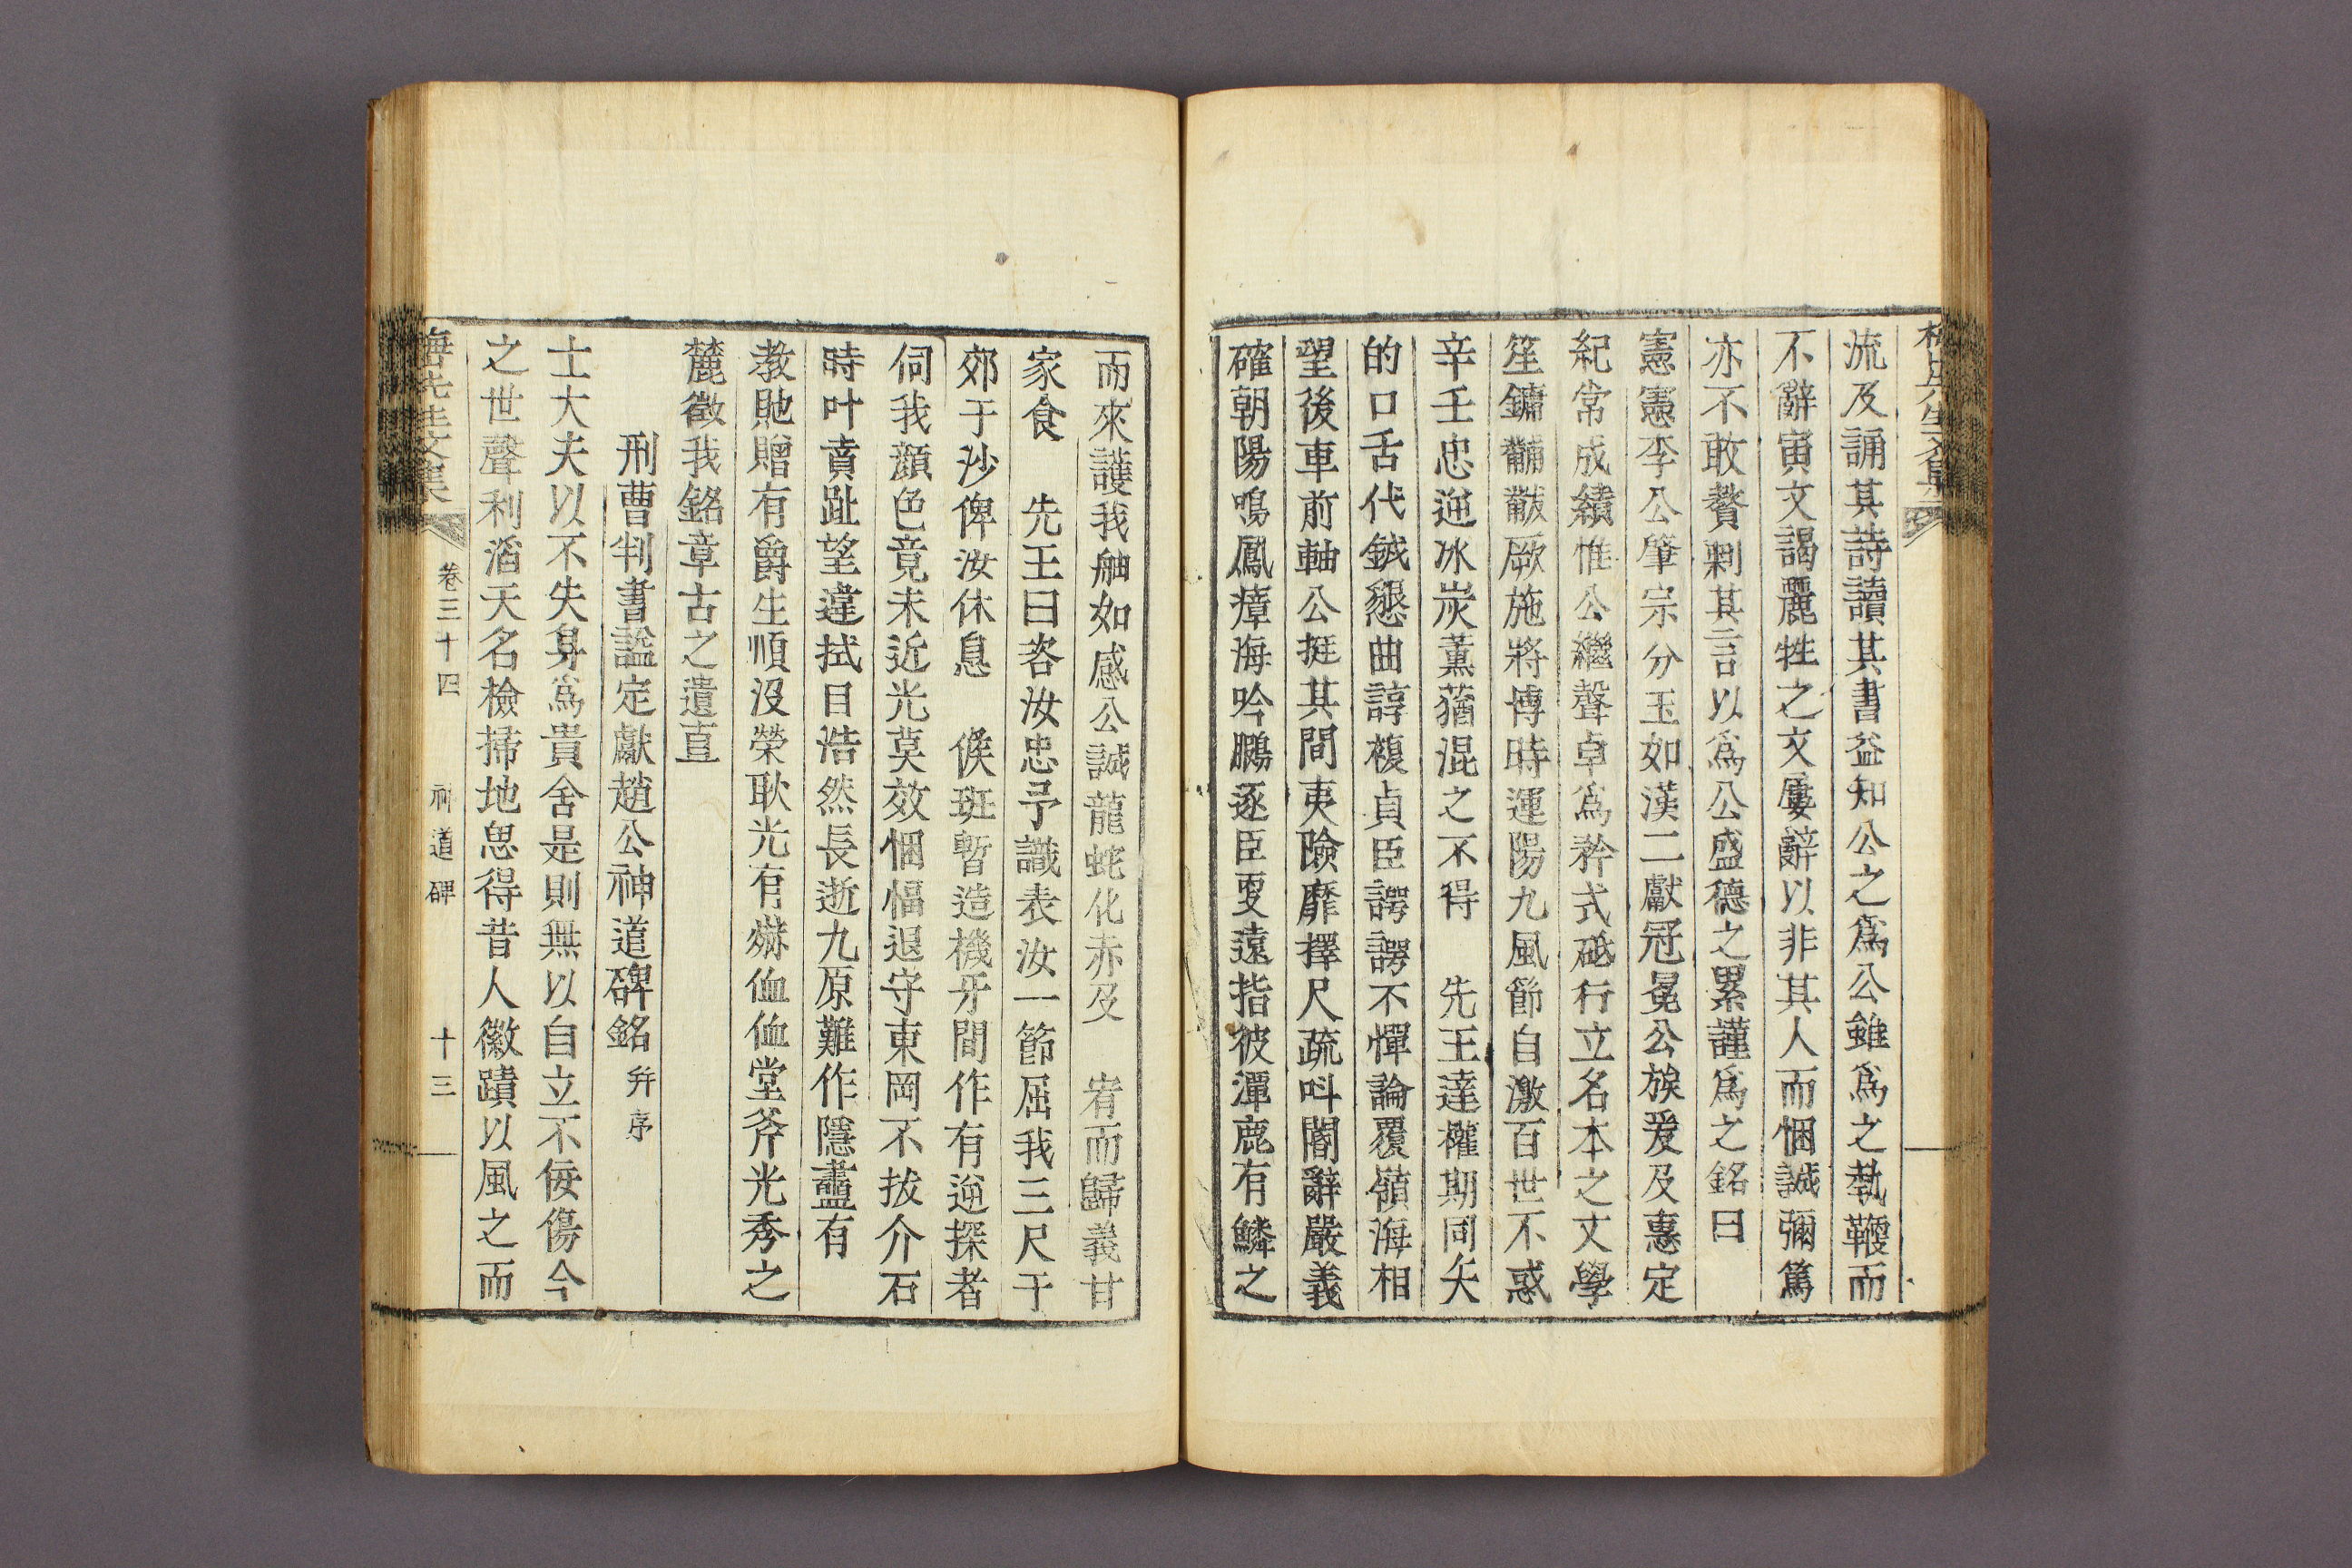 流及誦其詩讀其書益知公之爲公雖爲之執鞭而
不辭寅文謁麗牲之文屢辭以非其人而悃誠彌篤
亦不敢贅剩其言以爲公盛德之累謹爲之銘曰
憲憲李公肇宗分玉如漢二獻冠冕公族爰及惠定
紀常成績惟公繼聲卓爲矜式砥行立名本之文學
笙鏞黼黻厥施將博時運陽九風節自激百世不惑
辛壬忠逆氷炭薰蕕混之不得 先王達權期同矢
的口舌代鉞懇曲諄複貞臣諤諤不憚論覆嶺海相
望後車前軸公挺其間夷險靡擇尺疏叫閽辭嚴義
確朝陽鳴鳳瘴海吟鵩逐臣更遠指彼潭鹿有鱗之
而來護我舳如感公誠龍蛇化赤及 宥而歸義甘
家食 先王曰咨汝忠予識表汝一節屈我三尺于
郊于沙俾汝休息 候班暫造機牙間作有逆探者
伺我顔色竟未近光莫效悃愊退守東岡不拔介石
時叶賁趾望違拭目浩然長逝九原難作隱盡有
教貤贈有爵生順沒榮耿光有赫侐侐堂斧光秀之
麓徵我銘章古之遺直
刑曹判書謚定獻趙公神道碑銘 幷序
士大夫以不失身爲貴舍是則無以自立不佞傷今
之世聲利滔天名檢掃地思得昔人徽蹟以風之而
卷三十四 神道碑 十三